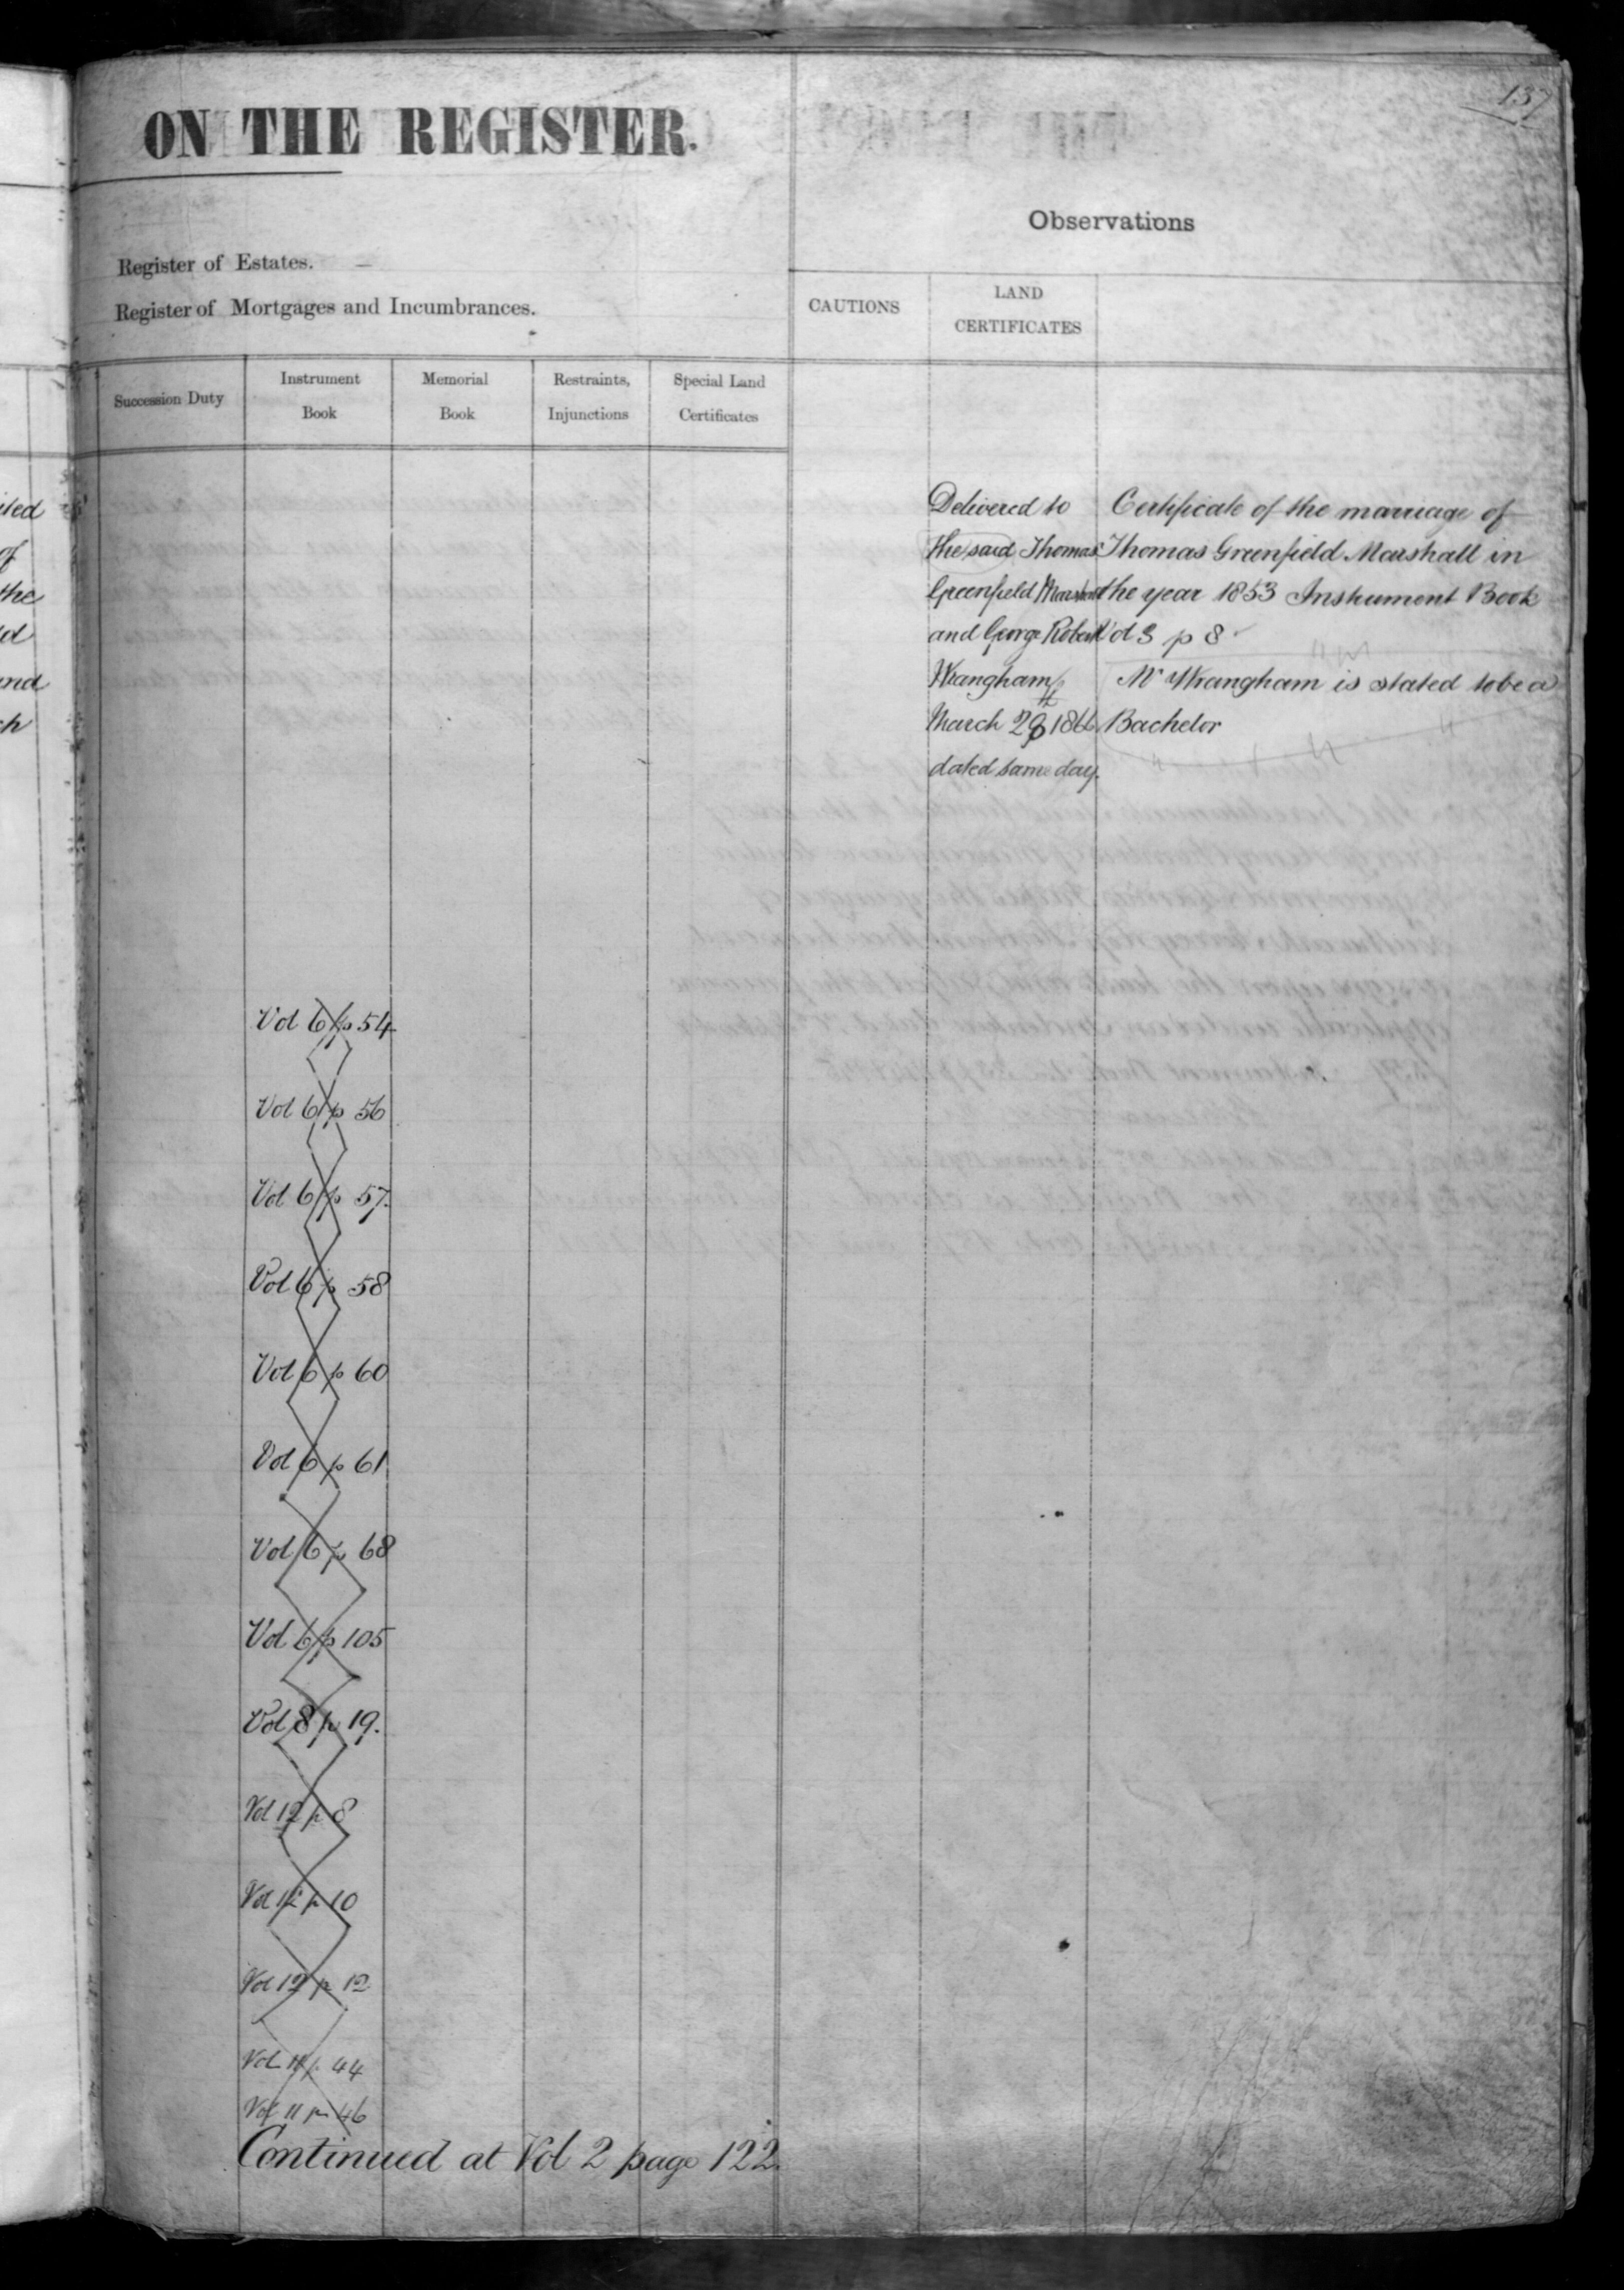 137
ON THE REGISTER.
Observations
Register of Estates. —
Register of Mortgages and Incumbrances.
CAUTIONS
LAND
CERTIFICATES
Succession Duty
Instrument
Book
Memorial
Book
Restraints,
Injunctions
Special Land
Certificates
Delivered to
the said Thomas
Greenfield Marshall
and George Robert
Wrangham
March 28 1866
dated same day.
Certificate of the marriage of
Thomas Greenfield Marshall in
the year 1853 Instrument Book
Vol 3 p 8
Mr Wrangham is stated to be a
Bachelor
Vol 6 p 54
Vol 6 p 56
Vol 6 p 57.
Vol 6 p 58
Vol 6 p 60
Vol 6 p 61
Vol 6 p 68
Vol 6 p 105
Vol 8 p 19.
Vol 12 p 8
Vol 12 p 10
Vol 12 p 12
Vol 11 p 44
Vol 11 p 46
Continued at Vol 2 page 122.
ited
of
the
d
and
ch